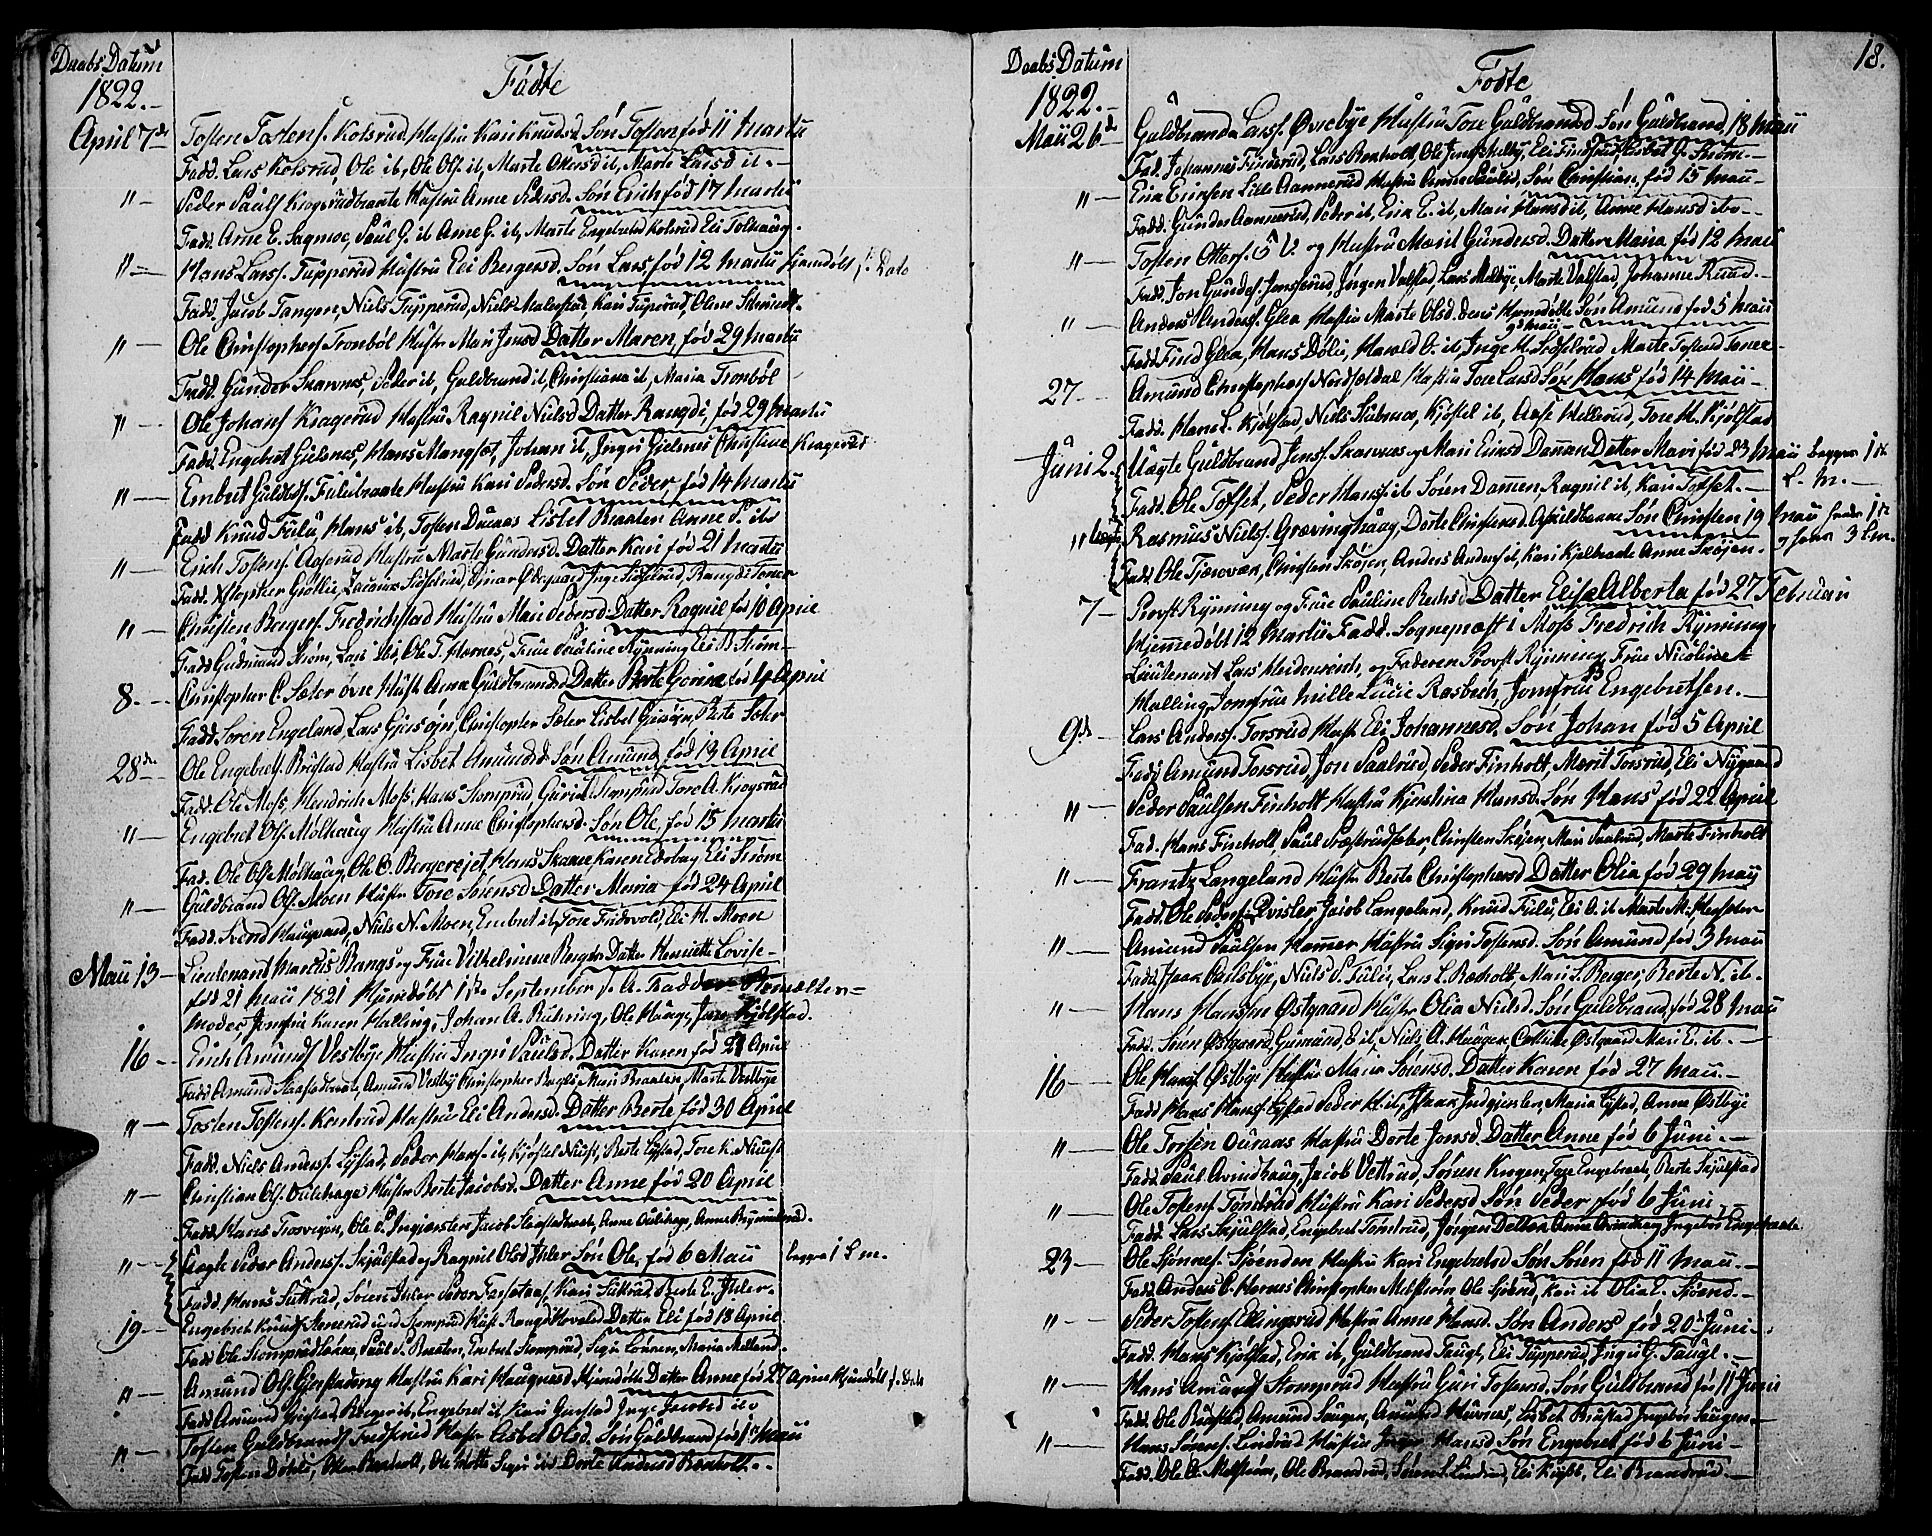 Daabs Datum
1822.
Fødte
April 7de
Tosten Tostens. Kolsrud Hustru Kari Knudsd Søn Tosten fød 11 Martii
Fadd. Lars Kolsrud, Ole it, Ole Ols. it, Marte Olersd it, Marte Larsd it.
" Peder Pauls Kragerudbraate Hustru Anne Pedersd. Søn Erich fød 17 Martii
Fadd. Arne E. Sagmoe, Paul G. it Arne G. it, Marte Engebretsd Kolsrud Eli Tolhaug.
" Hans Lars. Tupperud Hustru Eli Bergersd. Søn Lars fød 12 Martii hjemdøbt s. Dato
Fadd. Jacob Tangen, Niels Tupperud, Niels Kari Tuperud, Olene
" Ole Christophers Tronbøl Hustr Mari Jensd Datter Maren, fød 29 Martii
Fadd. Gunder Skarnes, Peder it, Guldbrand it, Christiana it, Maria Tronbøl
" Ole Johans Kragerud Hustru Ragnil Nielsd Datter Rangdi, fød 29 Martii
Fadd. Engebret Gielsnes, Hans Mangset, Johan it, Ingri Gielsnes Christine Kragerud
" Embret Guldbs. Fulubraate Hustru Kari Pedersd. Søn Peder, fød 14 Martii
Fadd Knud Fulu, Hans it, Tosten Lisbet Braaten Anne P. ibd
" Erich Tostens. Aaserud Hustru Marte Gundersd. Datter Kari fød 21 Martii
Fadd. Inge Rangdi Toner
" Christen Bergers. Fredrichstad Hustru Mari Pedersd. Datter Ragnil fød 10 April
Fadd Gudmund Strøm, Lars ibi, Ole T. Hornes, Frue Pauline Rynning Eli B Strøm
8. Christopher C. Sæter øvre Hust. Anne Guldbrandsd Datter Berte Gorine fød 4 April
Fadd. Soren Engeland, Lars Gjersøjn, Christopher Sæter Lisbet Gjersøjn, Berte Sæter
28de Ole Engebrets. Brustad Hustru Lisbet Amundsd Søn Amund fød 13 April
Fadd. Ole Moss, Hendrich Moss, Hans Stomprud Guri Stomprud Tore A. Krogsrud
" Engebret Ols. Mølhaug Hustru Anne Christophersd. Søn Ole, fød 15 Martii
Fad. Ole Ols Mølhaug, Ole O. Bergerejet, Hans Karen Eli Strøm
" Guldbrand Ols. Moen Hustr Tore Sørensd Datter Maria fød 24 April
Fadd. Svend Haugaard, Niels N. Moen, Embret it, Tore Eli H. Moen
Maii 13 Lieutenant Marcus Bangs og Frue Vilhelmine Datter Henriette Lovise
fød 21 Maii 1821 Hjemdøbt 1ste September s. A. Faddere
moder, Jomfru Karen Malling, Johan A. Bühring, Ole Haug, Jens Kjølstad.
16 Erich Amunds Vestbye Hustru Ingri Paulsd. Datter Karen fød 21 April
Fadd. Amund Amund Vestby Christopher Mari Braaten, Marte Vestbye
" Tosten Tostens. Konterud Hustrue Eli Andersd. Datter Berte fød 30 April
Fadd. Niels Anders. Lystad, Peder Hans. it, Kjøstel Berte Lystad, Tore K.
" Christian Ols. Oulihagen Hustr Berte Jacobsd. Datter Anne fød 20 April
Fadd. Hans Ole P. Ingiersten Jacob Anne Oulihage, Anne
" Uægte Peder Anders. Skjulstad og Ragnil Olsd Ihler Søn Ole, fød 6 Maii begge 1 L. m.
Fadd. Hans Suttrud, Søren Ihler Peder Kari Suttrud Berte E. Ihler
19 Engebret Knuds Stomprud Hust. Datter Eli fød 18 April
Fadd Ole Stomprud Paul P. Braaten, Embret Stomprud, Sigri Maria
" Amund Ols. Hustru Kari Haugnesd Datter Anne fød 27 April Hjemdøbt s. Dato
Fadd Amund Gjerstad, Berger it, Engebret it, Kari Gjerstad Inge Jacobsd ibd
" Tosten Guldbrands. Hustr Lisbet Olsd. Søn Guldbrand fød 1ste Maii
Fadd Tosten Dorte Amundsd
18.
Daabs Datum
1822.
Fødte
Maii 26de
Guldbrand Lars. Øvrebye Hustru Tore Guldbrandsd Søn Guldbrand, 18 Maii
Fad. Johannes Findsrud, Lars Ronholt, Ole Eli Findsrud, Lisbet G. Strøm
" Erik Eriksen Lille Aannerud Hustru Anne Paulsd, Søn Christian, fød 15 Maii
Fadd. Gunder Aannerud, Peder it, Erik E. it, Mari Hansd it, Anne Hansd ibd
" Tosten Otters. og Hustru Marit Gundersd. Datter Maria fød 12 Maii
Fadd. Jon Gunders. Jonsrud Jørgen Valstad, Lars Melbye, Marte Valstad, Johanne Ruud.
" Anders Anders. Glea Hustru Marte Olsd. deres Hjemdøbte Søn Amund fød 5 Maii
Fadd. Find Glea, Hans Dølie, Harald O. it, Inge H. Marte Tostensd Toner
27 Amund Christophers Nordseldal Hustru Tore Larsd Søn Hans fød 14 Maii
Fadd. Hans L. Kjølstad, Niels Kjøstel it, Aase Hillerud, Tore H. Kjølstad
Juni 2. Uægte Guldbrand Jens. Skarnes og Mari Eriksd Damen Datter Mari fød 23 Maii begges 1ste L. M.
Fadd. Ole Tofset, Peder Hans. it Søren Damen, Ragnil it, Kari Tofset.
" Uægte Rasmus Niels. Gravinghaug, Dorte Christensd. Søn Christen 19 Maii 1ste og hens 3 L. m.
Fadd. Ole Tjernvæk, Christen Skøjen, Anders Anders. it, Kari Kjelbraate Anne Skøjen.
7 Provst Rynning og Frue Pauline Datter Elise Alberta fød 27 Februari
Hjemmedøbt 12 Martii Fadd. Sognepræst i Moss Fredrich Rynning,
Lieutenant Lars Heidenreich, og Faderen Provst Rynning, Frue Nicoline
Malling, Jomfrue Mille Lucie Rosbech, Jomfrue Engebretsen.
9de Lars Anders. Torsrud Hustr Eli Johannesd. Søn Johan fød 5 April
Fadd. Amund Torsrud Jon Paalrud, Peder Finholt, Marit Torsrud, Eli Nygaard
" Peder Paulsen Finholt Hustru Kjerstina Hansd. Søn Hans fød 22 April
Fad. Hans Finholt, Paul Christen Skøjen, Mari Paalrud, Marte Finholt
" Frantz Langeland Hustr Berte Christophersd Datter Olia fød 29 Maii
Fadd. Ole Peders. Qvisler, Jacob Langeland, Knud Fulu, Eli O. it Marte M.
" Amund Paulsen Hammer Hustru Sigri Tostensd. Søn Amund fød 3 Maii
Fadd. Isaak Paulsbye, Niels P. Fulu, Lars L. Ronholt, Mari S. Berger, Berte N. it
" Hans Hansen Østgaard Hustr Olia Nielsd. Søn Guldbrand, fød 28 Maii
Fad. Søren Østgaard, Gunmund, E it, Niels A. Haugen, Østgaard Mari E. it.
16 Ole Hans. Østbye Hustru Maria Sørensd. Datter Karen fød 27 Maii
Fadd Hans Hans. Lystad Peder H. it, Isaak Indgjersten, Maria Lystad, Anne Østbye
" Ole Torsen Ouraas Hustru Dorte Jonsd. Datter Anne fød 6 Juni.
Fadd. Paul Arvindhaug, Jacob Vettrud, Søren Krogen, Tore Engebraate, Berte Skjulstad
" Ole Tostens. Tomterud Hustru Kari Pedersd Søn Peder fød 6 Juni
Fadd. Lars Skjulstad, Engebret Tomterud, Jørgen Anne Ingebor Engebraate
23 Ole Sjønnes. Sjøenden Hustru Kari Engebretsd Søn Søren fød 11 Maii.
Fadd. Anders C. Hornes Christopher Melstrøm Ole Sjøend, Kari it Olia E. Sjøend.
" Peder Tostens. Ellingsrud Hustru Anne Hansd. Søn Anders fød 20de Juni
Fadd. Hans Kjølstad, Erik it, Guldbrand Taugl, Eli Tupperud, Ingri G. Taugl.
" Hans Amunds Stomprud Hustru Guri Tostensd. Søn Guldbrand fød 11 Juni
Fadd. Ole Brustad, Amund Haugen, Amund Huvnes, Lisbet Brustad Ingebor Haugen
" Hans Sørens. Lindrud Hustru Inger Hansd Søn Engebret fød 6 Juni
Fadd. Ole O. Melstrøm, Ole Brandrud, Søren S. Lindrud, Eli Eli Brandrud